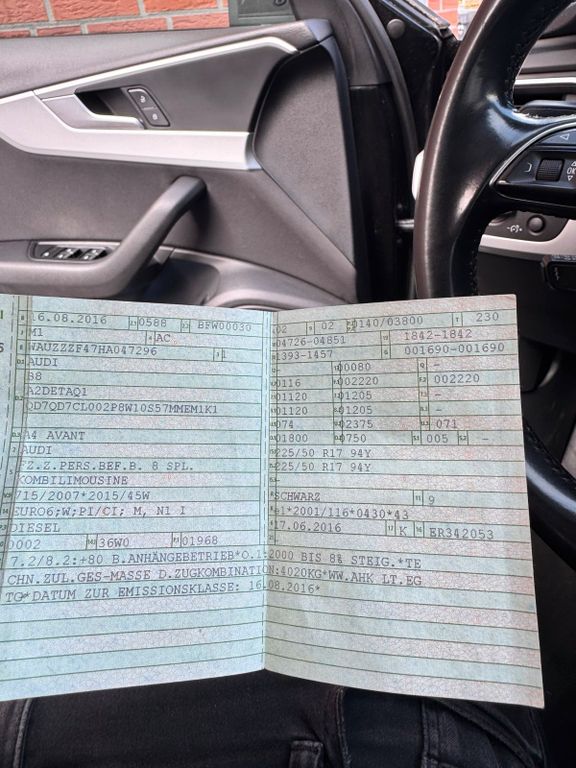 B 16.08.2016 2.1 0588 2.2 BFW00030
J M1 4 AC
E WAUZZZF47HA047296 3 1
D.1 AUDI
B8
D.2 A2DETAQ1
QD7QD7CL002P8W10S57MMEM1K1
D.3 A4 AVANT
2 AUDI
5 FZ.Z.PERS.BEF.B. 8 SPL.
KOMBILIMOUSINE
V.9 715/2007*2015/45W
14 EURO6;W;PI/CI; M, N1 I
P.3 DIESEL
0002 14.1 36W0 P.1 01968
7.2/8.2:+80 B.ANHÄNGEBETRIEB*O.1:2000 BIS 8% STEIG.*TE
CHN.ZUL.GES-MASSE D.ZUGKOMBINATION:4020KG*WW.AHK LT.EG
TG*DATUM ZUR EMISSIONSKLASSE: 16.08.2016*
L 02 9 02 0140/03800 T 230
18 04726-04851 19 1842-1842
20 1393-1457 G 001690-001690
0080 -
0116 002220 002220
01120 01205 -
01120 01205 -
074 02375 071
01800 0750 S.1 005 S.2 -
225/50 R17 94Y
225/50 R17 94Y
-
SCHWARZ 11 9
e1*2001/116*0430*43
17.06.2016 17 K 16 ER342053
OK